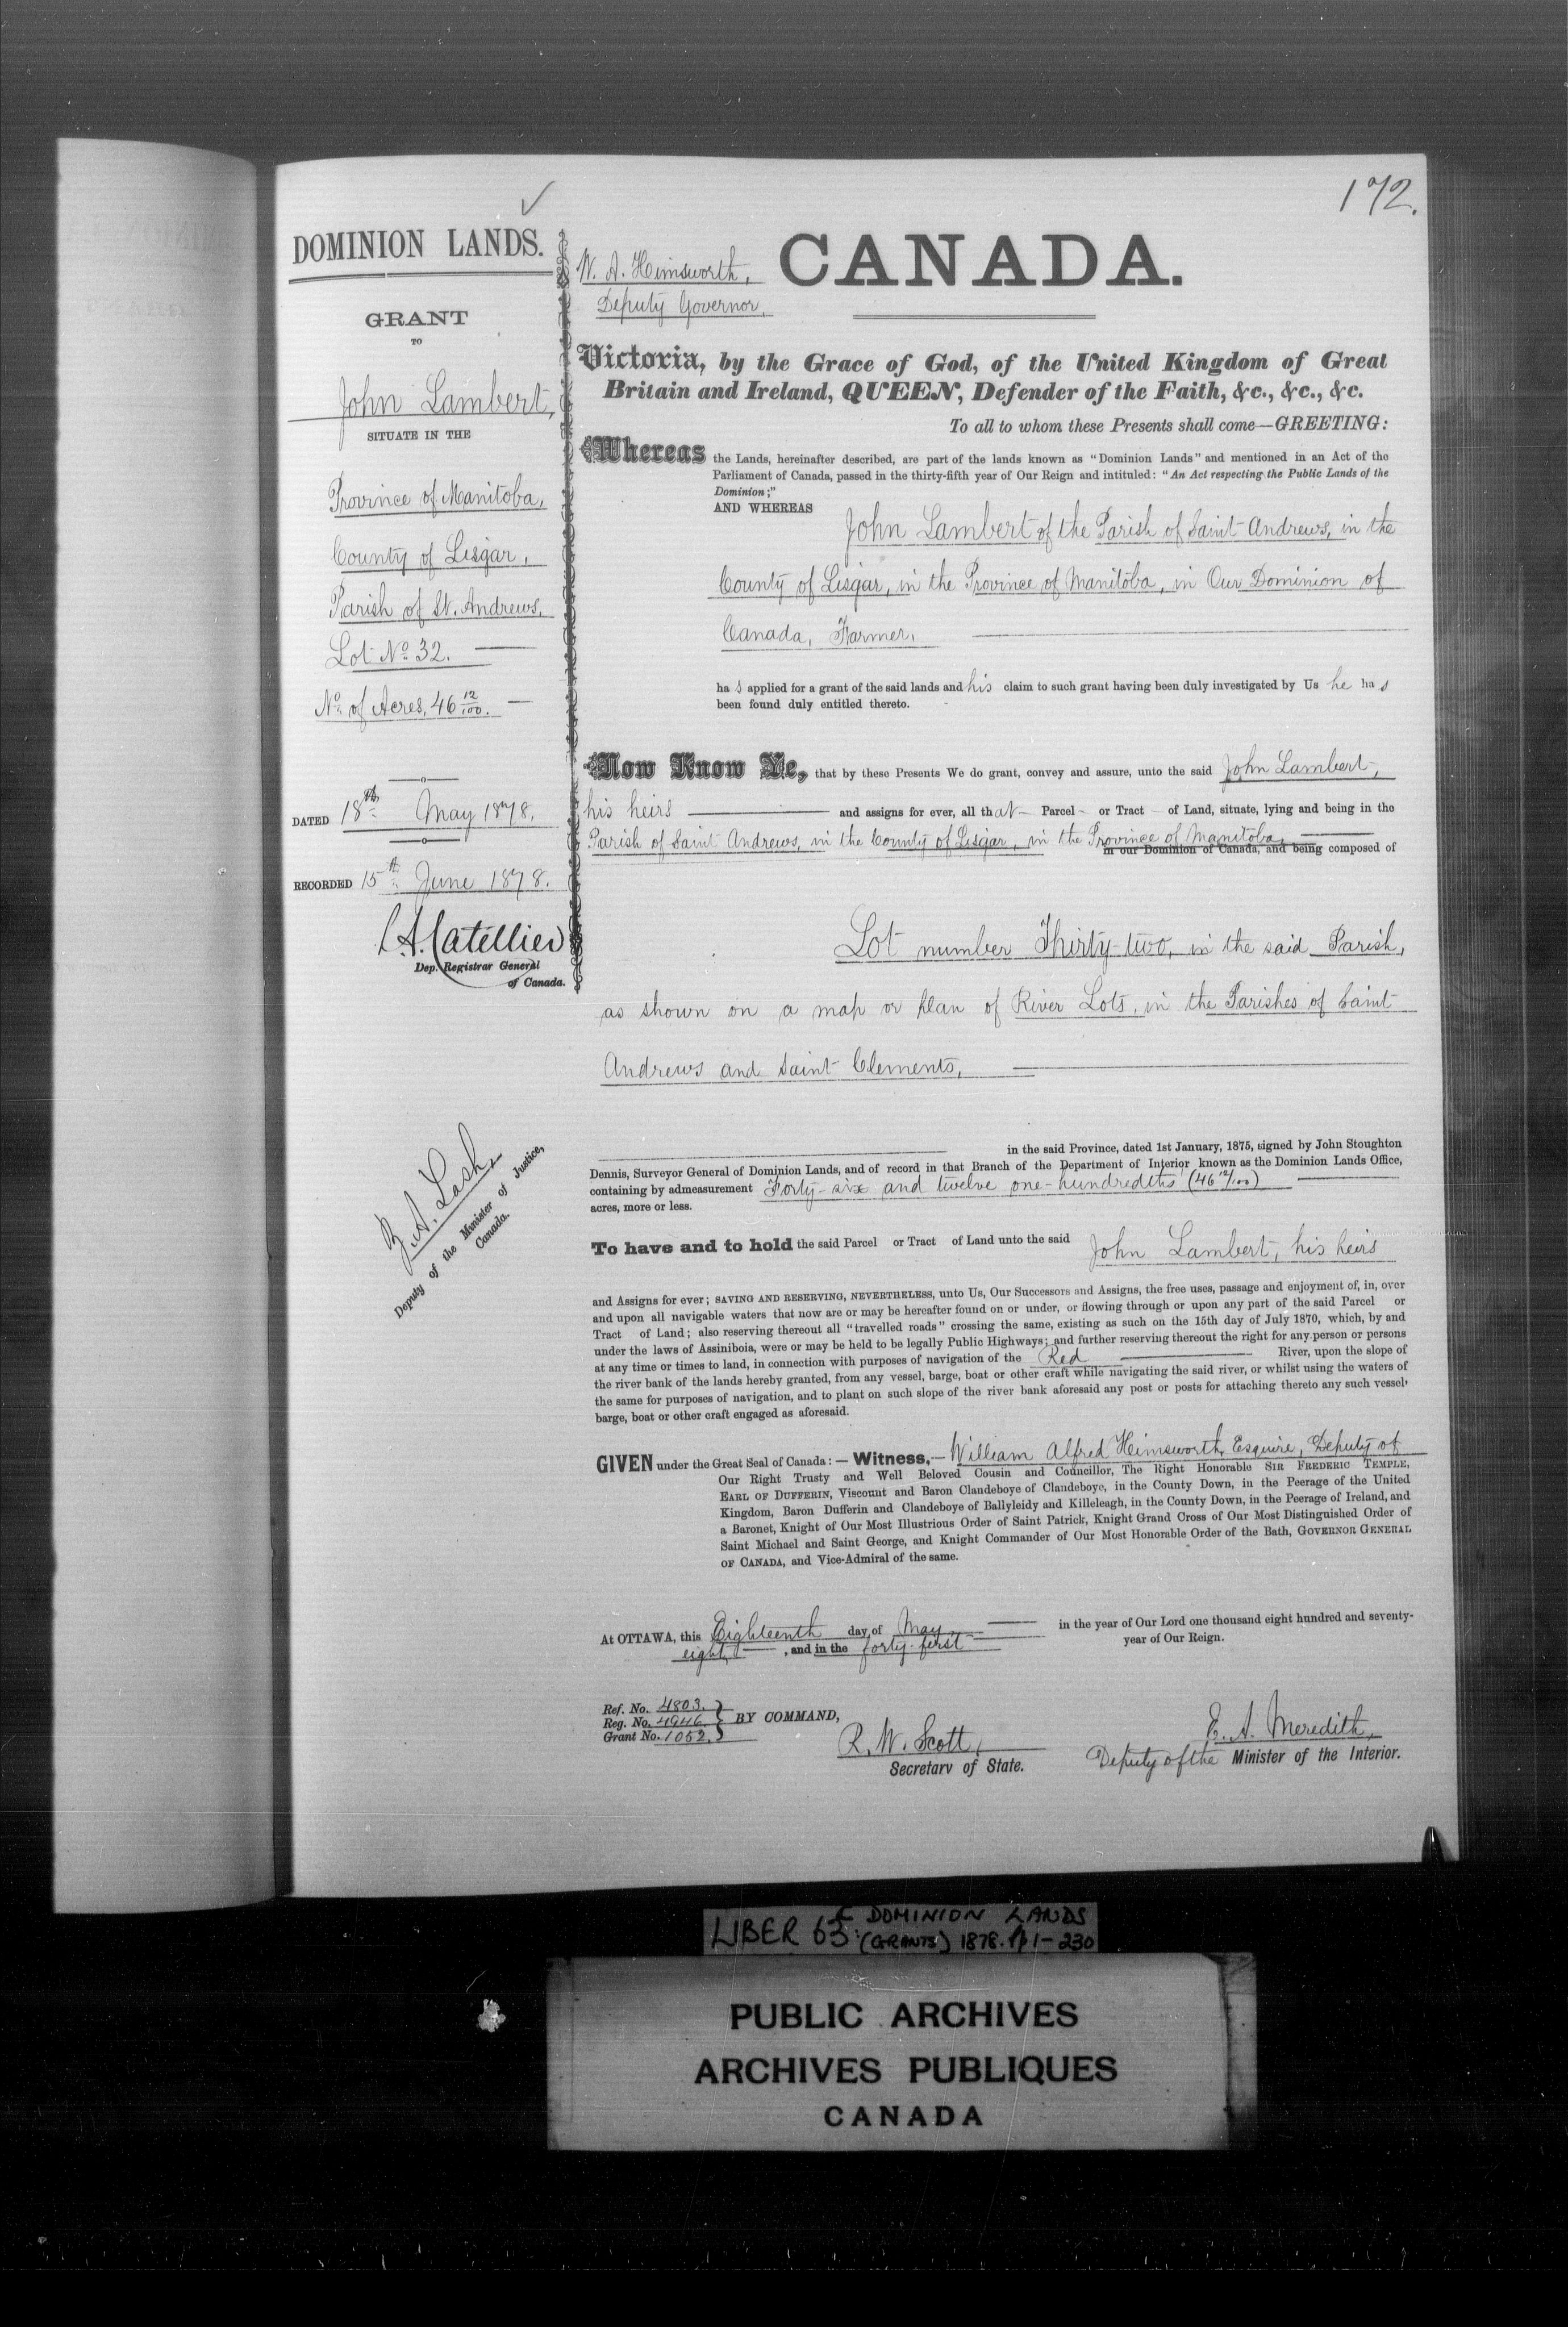 172.
DOMINION LANDS.
GRANT
TO
John Lambert,
SITUATE IN THE
Province of Manitoba,
County of Lisgar,
Parish of St. Andrews,
Lot No. 32.
No. of Acres, 46 12/100.
DATED 18th May 1878.
RECORDED 15th June 1878.
L. A. Catellier
Dep. Registrar General
of Canada.
Z. A. Lash,
Deputy of the Minister of Justice,
Canada.
W. A. Himsworth,
Deputy Governor.
CANADA.
Victoria, by the Grace of God, of the United Kingdom of Great
Britain and Ireland, QUEEN, Defender of the Faith, &c., &c., &c.
To all to whom these Presents shall come—GREETING:
Whereas the Lands, hereinafter described, are part of the lands known as "Dominion Lands" and mentioned in an Act of the
Parliament of Canada, passed in the thirty-fifth year of Our Reign and intituled: "An Act respecting the Public Lands of the
Dominion;"
AND WHEREAS John Lambert of the Parish of Saint Andrews, in the
County of Lisgar, in the Province of Manitoba, in Our Dominion of
Canada, Farmer,
has applied for a grant of the said lands and his claim to such grant having been duly investigated by Us he has
been found duly entitled thereto.
Now Know Ye, that by these Presents We do grant, convey and assure, unto the said John Lambert,
his heirs and assigns for ever, all that Parcel or Tract of Land, situate, lying and being in the
Parish of Saint Andrews, in the County of Lisgar, in the Province of Manitoba,
in our Dominion of Canada, and being composed of
Lot number Thirty-two, in the said Parish,
as shown on a map or plan of River Lots, in the Parishes of Saint
Andrews and Saint Clements,
in the said Province, dated 1st January, 1875, signed by John Stoughton
Dennis, Surveyor General of Dominion Lands, and of record in that Branch of the Department of Interior known as the Dominion Lands Office,
containing by admeasurement Forty-six and twelve one-hundredths (46 12/100)
acres, more or less.
To have and to hold the said Parcel or Tract of Land unto the said John Lambert, his heirs
and Assigns for ever; SAVING AND RESERVING, NEVERTHELESS, unto Us, Our Successors and Assigns, the free uses, passage and enjoyment of, in, over
and upon all navigable waters that now are or may be hereafter found on or under, or flowing through or upon any part of the said Parcel or
Tract of Land; also reserving thereout all "travelled roads" crossing the same, existing as such on the 15th day of July 1870, which, by and
under the laws of Assiniboia, were or may be held to be legally Public Highways; and further reserving thereout the right for any person or persons
at any time or times to land, in connection with purposes of navigation of the Red River, upon the slope of
the river bank of the lands hereby granted, from any vessel, barge, boat or other craft while navigating the said river, or whilst using the waters of
the same for purposes of navigation, and to plant on such slope of the river bank aforesaid any post or posts for attaching thereto any such vessel,
barge, boat or other craft engaged as aforesaid.
GIVEN under the Great Seal of Canada:— Witness,— William Alfred Himsworth, Esquire, Deputy of
Our Right Trusty and Well Beloved Cousin and Councillor, The Right Honorable SIR FREDERIC TEMPLE,
EARL OF DUFFERIN, Viscount and Baron Clandeboye of Clandeboye, in the County Down, in the Peerage of the United
Kingdom, Baron Dufferin and Clandeboye of Ballyleidy and Killeleagh, in the County Down, in the Peerage of Ireland, and
a Baronet, Knight of Our Most Illustrious Order of Saint Patrick, Knight Grand Cross of Our Most Distinguished Order of
Saint Michael and Saint George, and Knight Commander of Our Most Honorable Order of the Bath, GOVERNOR GENERAL
OF CANADA, and Vice-Admiral of the same.
At OTTAWA, this Eighteenth day of May in the year of Our Lord one thousand eight hundred and seventy-
eight, and in the forty-first year of Our Reign.
Ref. No. 4803.
Reg. No. 4946. BY COMMAND,
Grant No. 1052.
R. W. Scott,
Secretary of State.
E. A. Meredith,
Deputy of the Minister of the Interior.
LIBER 63: DOMINION LANDS
(GRANTS) 1878. pp 1-230
PUBLIC ARCHIVES
ARCHIVES PUBLIQUES
CANADA